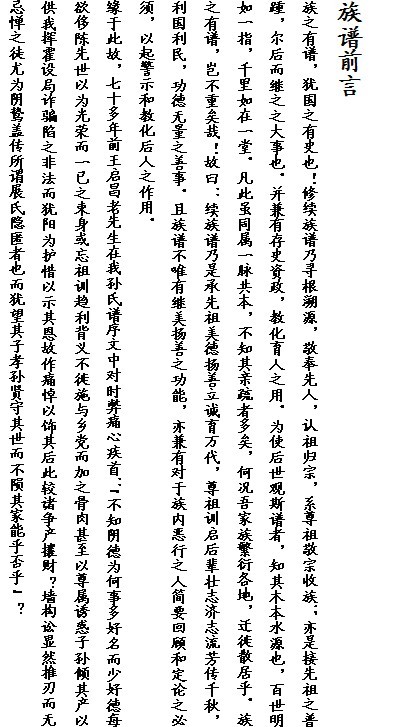 族谱前言
族之有谱，犹国之有史也！修续族谱乃寻根溯源，敬奉先人，认祖归宗，系尊祖敬宗收族；亦是接先祖之普
踵，尔后而继之之大事也。并兼有存史资政，教化育人之用。为使后世观斯谱者，知其木本水源也，百世明
如一指，千里如在一堂。凡此虽同属一脉共本，不知其亲疏者多矣，何况吾家族繁衍各地，迁徙散居乎。族
之有谱，岂不重矣哉！故曰：续族谱乃是承先祖美德扬善立诚育万代，尊祖训启后辈壮志济志流芳传千秋，
利国利民，功德无量之善事。且族谱不唯有继美扬善之功能，亦兼有对于族内恶行之人简要回顾和定论之必
须，以起警示和教化后人之作用。
缘于此故，七十多年前王启昌老先生在我孙氏谱序文中对时弊痛心疾首：“不知阴德为何事多好名而少好德每
欲侈陈先世以为光荣而一已之束身或忘祖训趋利背义不徒施与乡党而加之骨肉甚至以尊属诱惑子孙倾其产以
供我挥霍设局诈骗陷之非法而犹阳为护惜以示其恩故作痛悼以饰其后此较诸争产攘财？墙构讼显然推刃而无
忌惮之徒尤为阴鸷盖传所谓展氏隐匿者也而犹望其子孝孙贤守其世而不陨其家能乎否乎”？